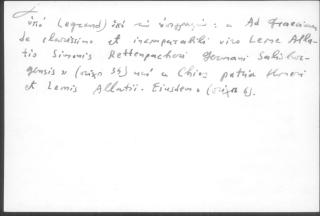 ὑπό Legrand) ἐπί : « Ad Graeciam
de clarissimo et incomparabili viro Leone Alla-
tio Simonis Rettenpacheri Germani Salisbur-
gensis » (στίχοι 54) καί « Chios patria Homeri
et Leonis Allatii. Eiusdem » (στίχοι 6).